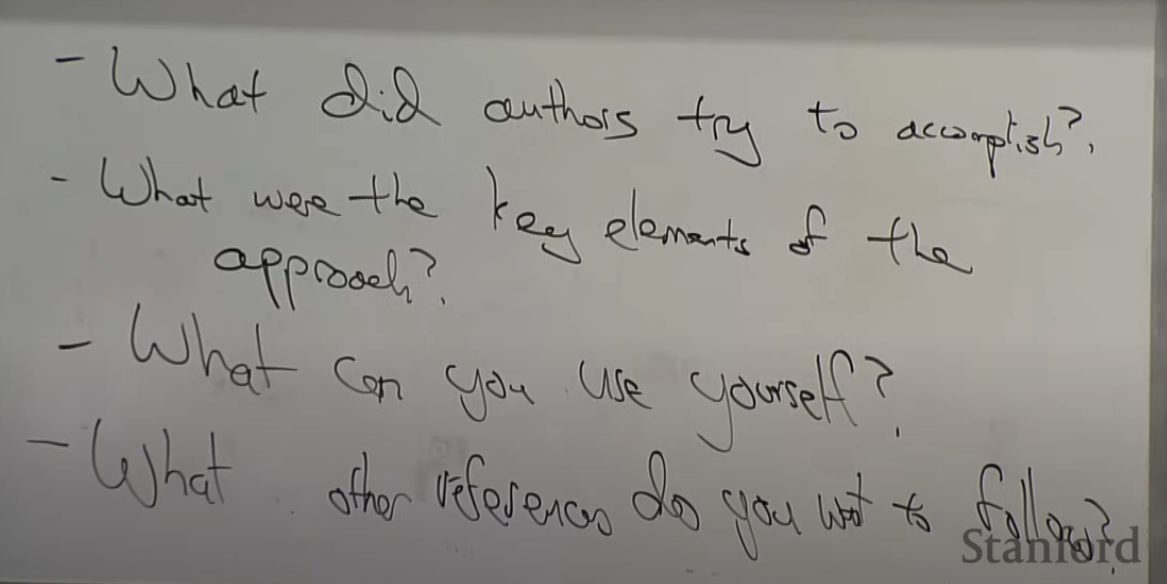 - What did authors try to accomplish?
- What were the key elements of the
approach?
- What can you use yourself?
- What other references do you want to follow?
Stanford